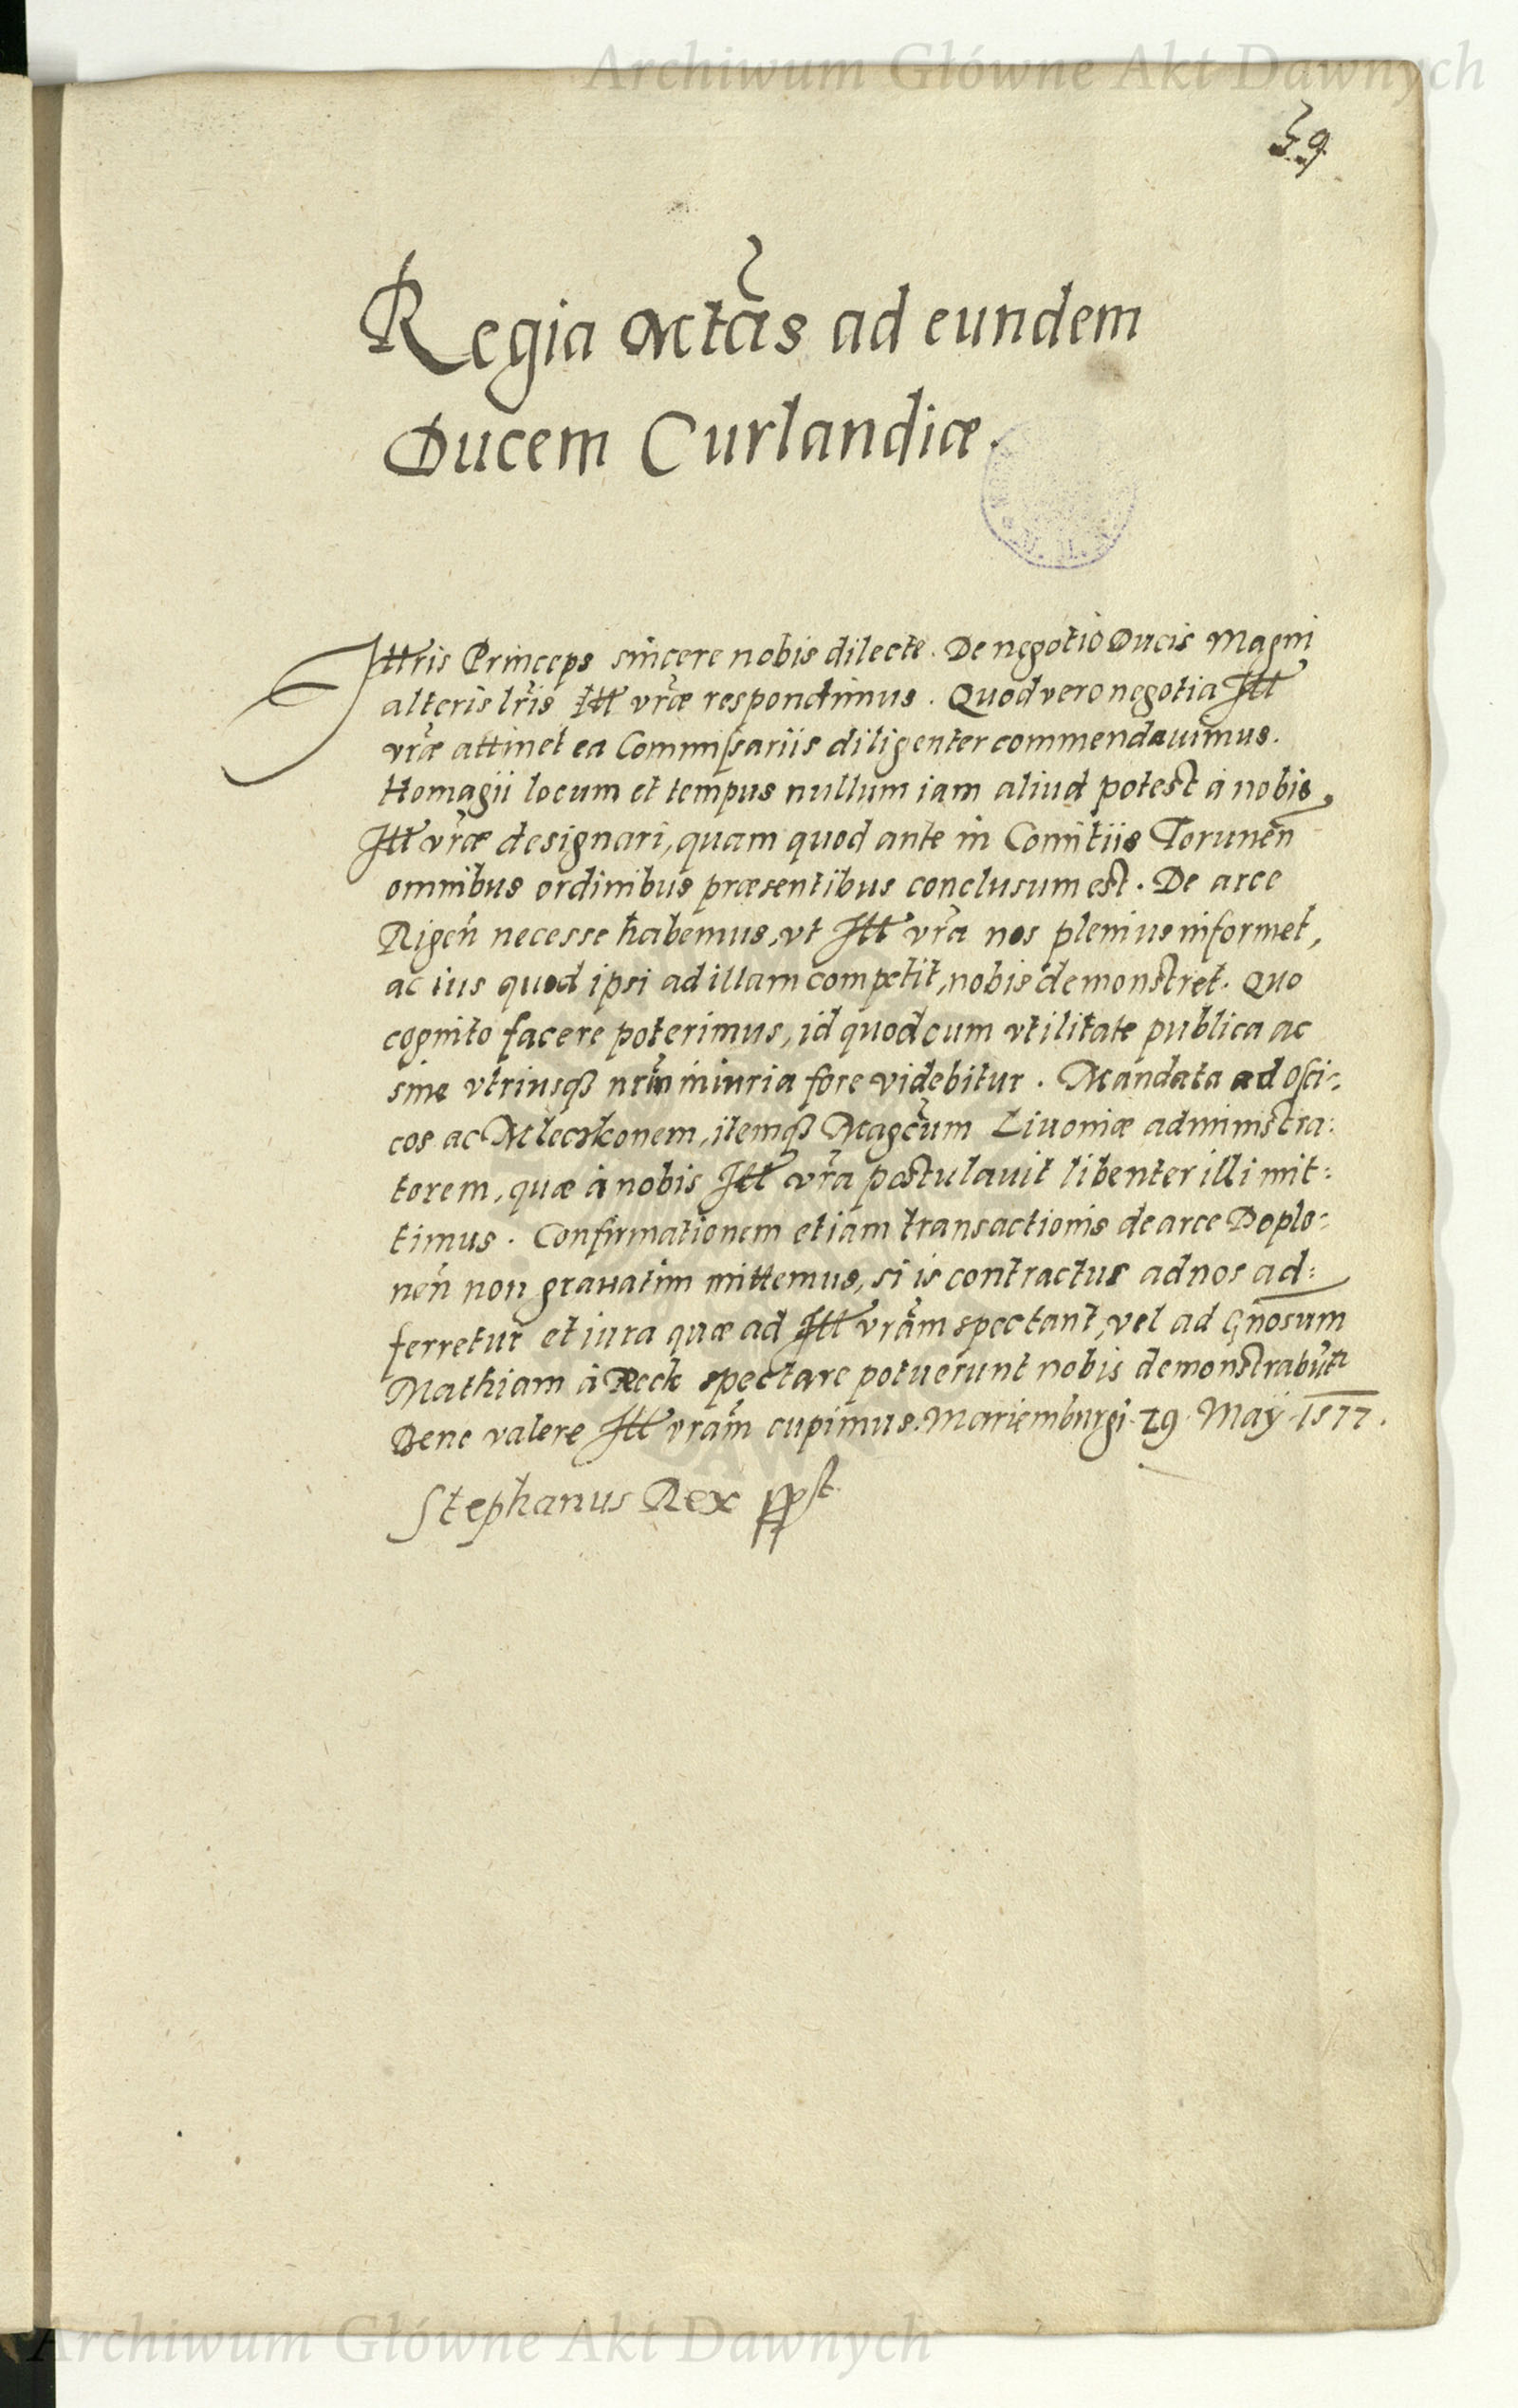 Archiwum Główne Akt Dawnych
59
Regia Mtas ad eundem
Ducem Curlandiæ.
Illris Princeps sincere nobis dilecte. De negotio Ducis Magni
alteris lris Ill vræ respondimus. Quod vero negotia Ill
vræ attinet ea Commissariis diligenter commendauimus.
Homagii locum et tempus nullum iam aliud potest à nobis
Ill vræ designari, quam quod ante in Comitiis Torunen
omnibus ordinibus præsentibus conclusum est. De arce
Rigen necesse habemus, vt Ill vra nos plenius informet,
ac ius quod ipsi ad illam competit, nobis demonstret. Quo
cognito facere poterimus, id quod cum vtilitate publica ac
sine vtriusq nrm iniuria fore videbitur. Mandata ad
cos ac itemq Magcum Liuoniæ administra:
torem, quæ à nobis Ill vra postulauit libenter illi mit:
timus. Confirmationem etiam transactionis de arce Doplo:
nen non grauatim mittemus, si is contractus ad nos ad:
ferretur et iura quæ ad Ill vram spectant, vel ad Gnosum
Mathiam à Reck spectare potuerunt nobis demonstrabutr
Bene valere Ill vram cupimus. Mariemburgi 29 Maÿ 1577.
Stephanus Rex sspst
Archiwum Główne Akt Dawnych